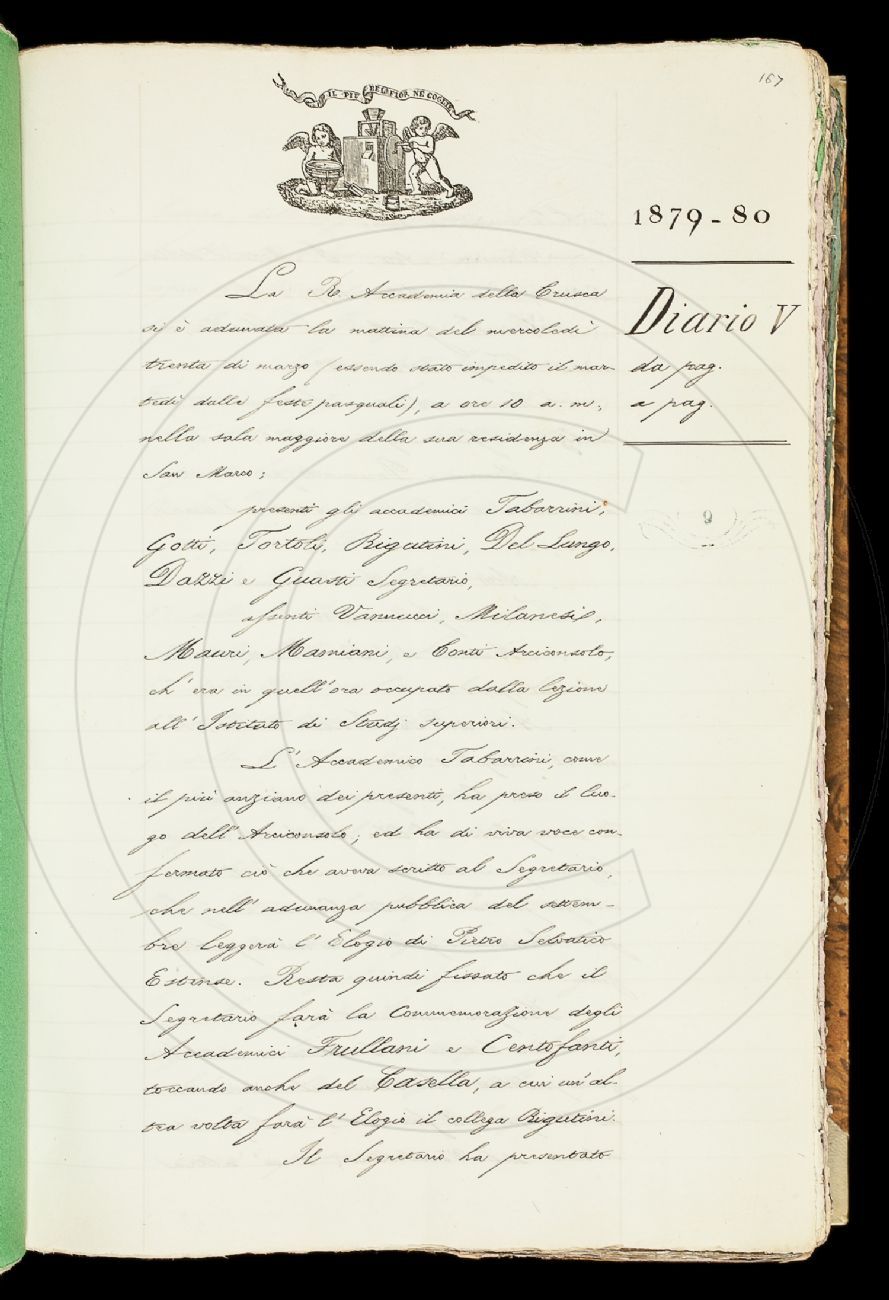 167
IL PIÙ BEL FIOR NE COGLIE
1879-80
Diario V
da pag.
a pag.
La R. Accademia della Crusca
si è adunata la mattina del mercoledì
trenta di marzo (essendo stato impedito il mar-
tedì dalle feste pasquali), a ore 10 a. m.,
nella sala maggiore della sua residenza in
San Marco;
presenti gli accademici Tabarrini,
Gotti, Tortoli, Rigutini, Del Lungo,
Dazzi e Guasti Segretario,
assenti Vannucci, Milanesi,
Mauri, Mamiani, e Conti Arciconsolo,
ch'era in quell'ora occupato dalla lezione
all'Istituto di Studj superiori.
L'Accademico Tabarrini, come
il più anziano dei presenti, ha preso il luo-
go dell'Arciconsolo; ed ha di viva voce con-
fermato ciò che aveva scritto al Segretario,
che nell'adunanza pubblica del settem-
bre leggerà l'Elogio di Pietro Selvatico
Estense. Resta quindi fissato che il
Segretario farà la Commemorazione degli
Accademici Frullani e Centofanti,
toccando anche del Casella, a cui un'al-
tra volta farà l'Elogio il collega Rigutini.
Il Segretario ha presentato